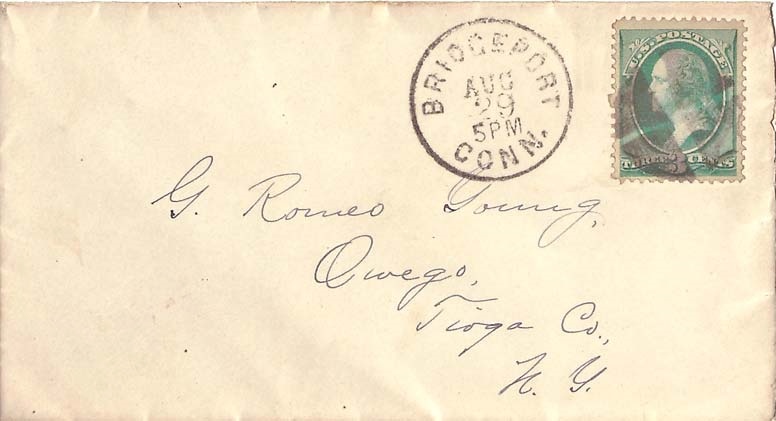 BRIDGEPORT
AUG
29
5PM
CONN.
U.S. POSTAGE
THREE 3 CENTS
G. Romeo Young,
Owego,
Tioga Co.,
N. Y.